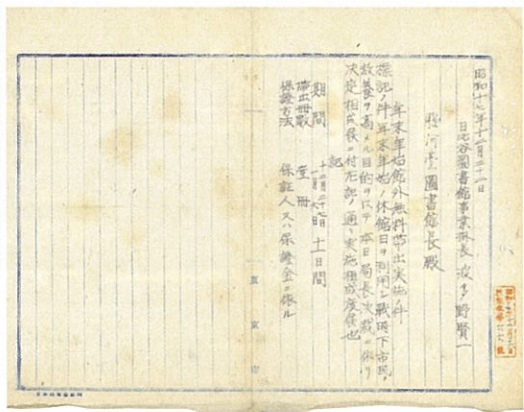 昭和十七年十二月二十一日
日比谷図書館事業掛長 波多野賢一
駿河台図書館長殿
年末年始館外無料帯出実施ノ件
標記ノ件年末年始ノ休館日ヲ利用シ戦時下市民ノ
教養ヲ高メル目的ヲ以テ本日局長決裁ニ依リ
決定相成候ニ付左記ノ通リ実施相成度候也
記
期間 十二月二十七日 一月六日 十一日間
帯出冊数 壹冊
保證方法 保証人又ハ保證金ニ依ル
東京市